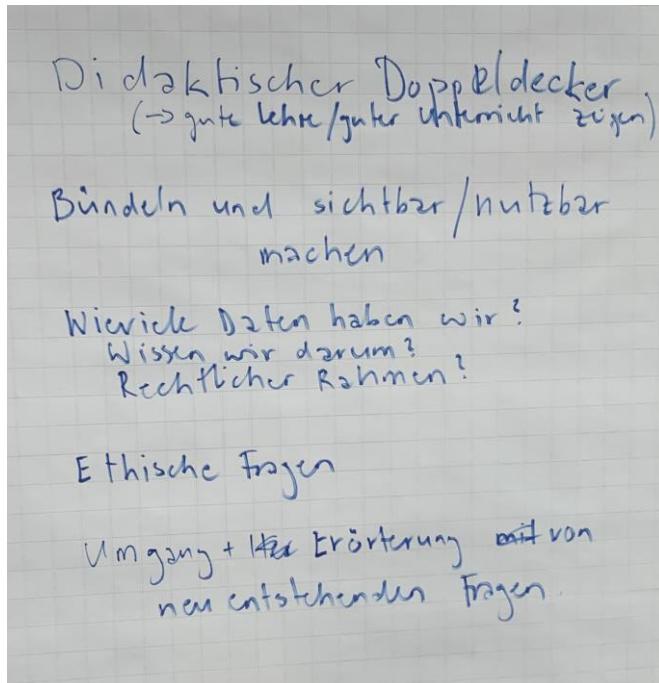 Didaktischer Doppeldecker
(→ gute Lehre/guter Unterricht zeigen)
Bündeln und sichtbar/nutzbar
machen
Wieviele Daten haben wir?
Wissen wir darum?
Rechtlicher Rahmen?
Ethische Fragen
Umgang + Erörterung mit von
neu entstehenden Fragen.